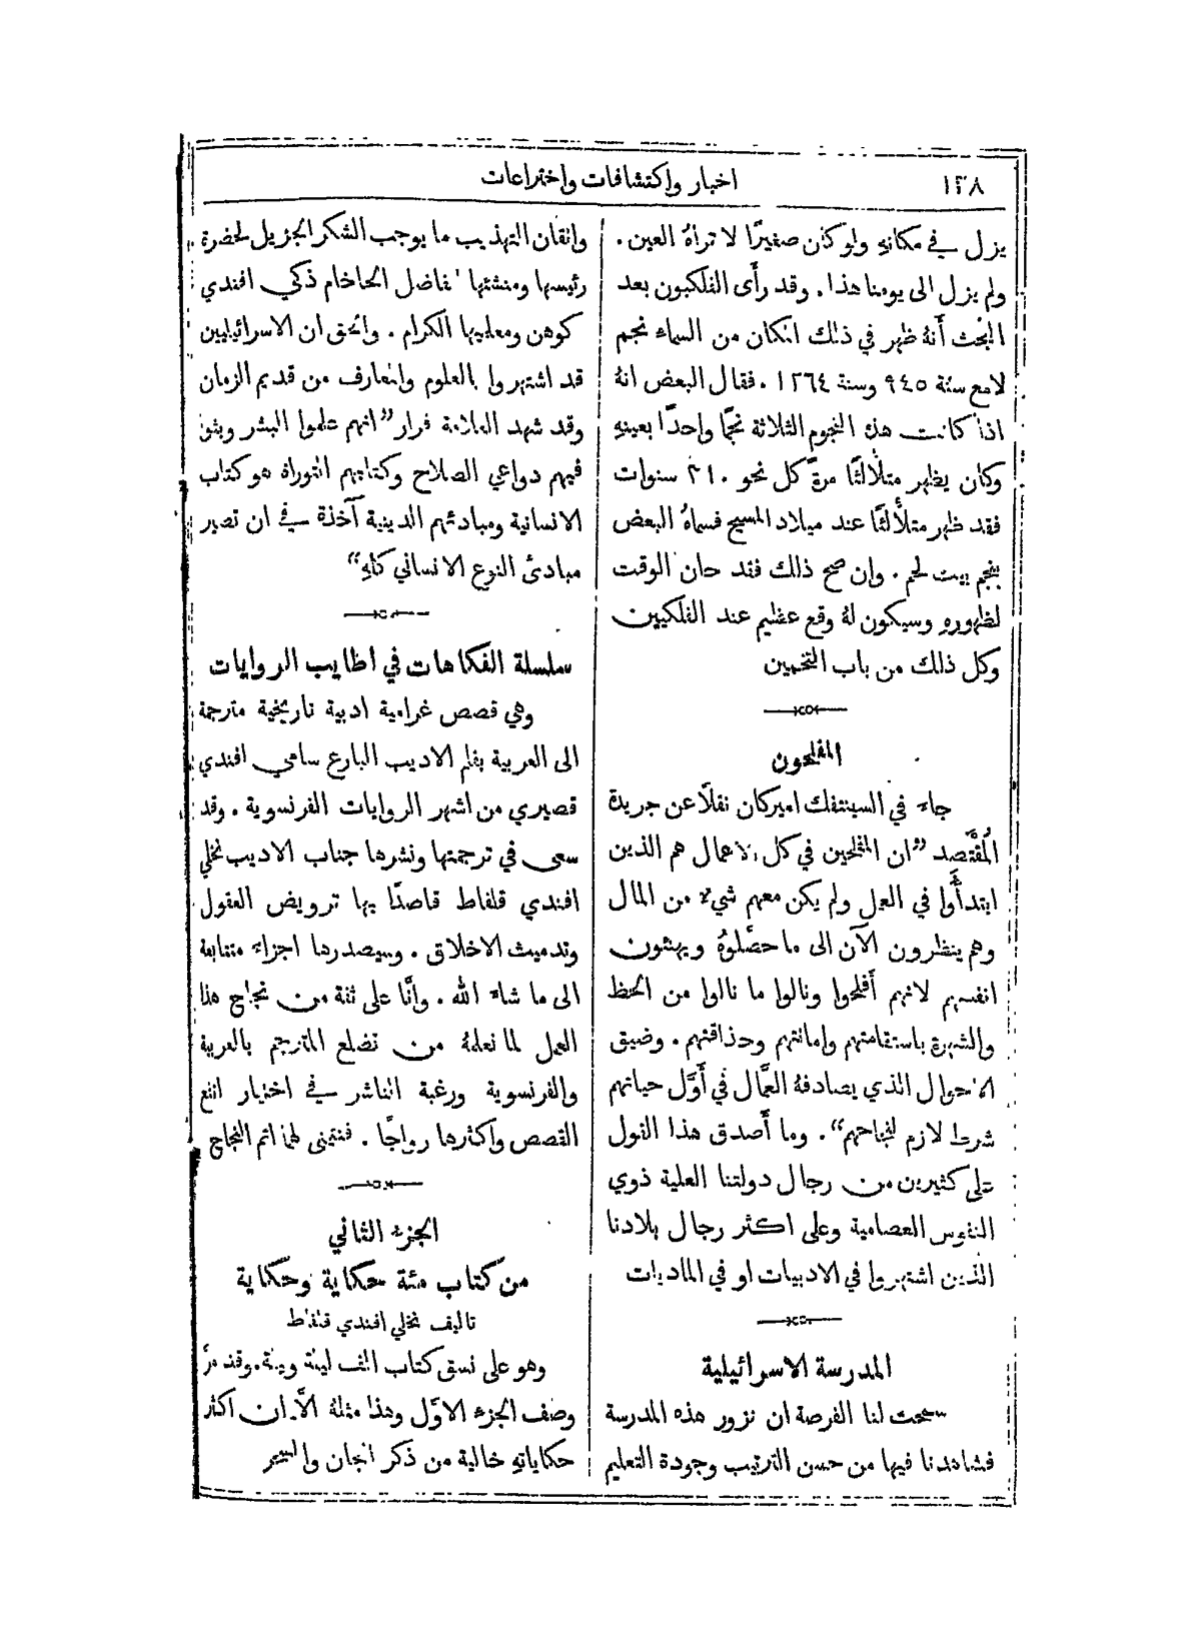 ١٣٨
اخبار واكتشافات واختراعات
يزل في مكانهِ ولو كان صغيرًا لا تراهُ العين.
ولم يزل الى يومنا هذا. وقد رأى الفلكيون بعد
البحث أنهُ ظهر في ذلك المكان من السماء نجم
لامع سنة ٩٤٥ وسنة ١٢٦٤. فقال البعض انهُ
اذا كانت هذه النجوم الثلاثة نجمًا واحدًا بعينهِ
وكان يظهر متلألئًا مرةً كل نحو ٣١٠ سنوات
فقد ظهر متلألئًا عند ميلاد المسيح فسماهُ البعض
بنجم بيت لحم. وان صح ذلك فقد حان الوقت
لظهورهِ وسيكون لهُ وقع عظيم عند الفلكيين
وكل ذلك من باب التخمين
المفلحون
جاء في السينتفك اميركان نقلًا عن جريدة
المُقْتَصِد ”ان المفلحين في كل الاعمال هم الذين
ابتدأُوا في العمل ولم يكن معهم شيء من المال
وهم ينظرون الآن الى ما حصَّلوهُ ويهنئون
انفسهم لانهم أفلحوا ونالوا ما نالوا من الحظ
والشهرة باستقامتهم وامانتهم وحذاقتهم. وضيق
الاحوال الذي يصادفهُ العمَّال في أوَّل حياتهم
شرط لازم لنجاحهم“. وما أصدق هذا القول
على كثيرين من رجال دولتنا العلية ذوي
النفوس العصامية وعلى اكثر رجال بلادنا
الذين اشتهروا في الادبيات او في الماديات
المدرسة الاسرائيلية
سمحت لنا الفرصة ان نزور هذه المدرسة
فشاهدنا فيها من حسن الترتيب وجودة التعليم
واتقان التهذيب ما يوجب الشكر الجزيل لحضرة
رئيسها ومنشئها الفاضل الحاخام ذكي افندي
كوهن ومعلميها الكرام. والحق ان الاسرائيليين
قد اشتهروا بالعلوم والمعارف من قديم الزمان
وقد شهد العلامة فرار ”انهم علموا البشر وبثوا
فيهم دواعي الصلاح وكتابهم التوراة هو كتاب
الانسانية ومبادئهم الدينية آخذة في ان تصير
مبادئ النوع الانساني كلهِ“
سلسلة الفكاهات في اطايب الروايات
وهي قصص غرامية ادبية تاريخية مترجمة
الى العربية بقلم الاديب البارع سامي افندي
قصيري من اشهر الروايات الفرنسوية. وقد
سعى في ترجمتها ونشرها جناب الاديب نخلي
افندي قلفاط قاصدًا بها ترويض العقول
وتدميث الاخلاق. وسيصدرها اجزاء متتابعة
الى ما شاء الله. وانَّا على ثقة من نجاح هذا
العمل لما نعلمهُ من تضلع المترجم بالعربية
والفرنسوية ورغبة الناشر في اختيار انفع
القصص واكثرها رواجًا. فنتمنى لهما اتم النجاح
الجزء الثاني
من كتاب مئة حكاية وحكاية
تاليف نخلي افندي قلفاط
وهو على نسق كتاب الف ليلة وليلة. وقد مرَّ
وصف الجزء الاوَّل وهذا مثلهُ الَّا ان اكثر
حكاياتهِ خالية من ذكر الجان والسحر